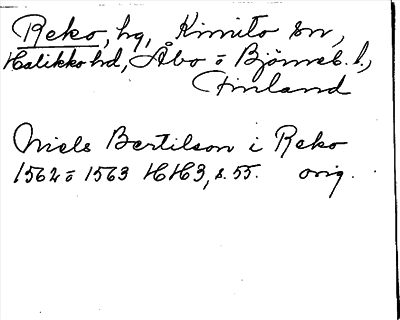 Reko, hg, Kimito sn,
Halikko hd, Åbo o Björneb. l.,
Finland
Niels Bertilson i Reko
1562 o 1563 HH3, s. 55. orig.